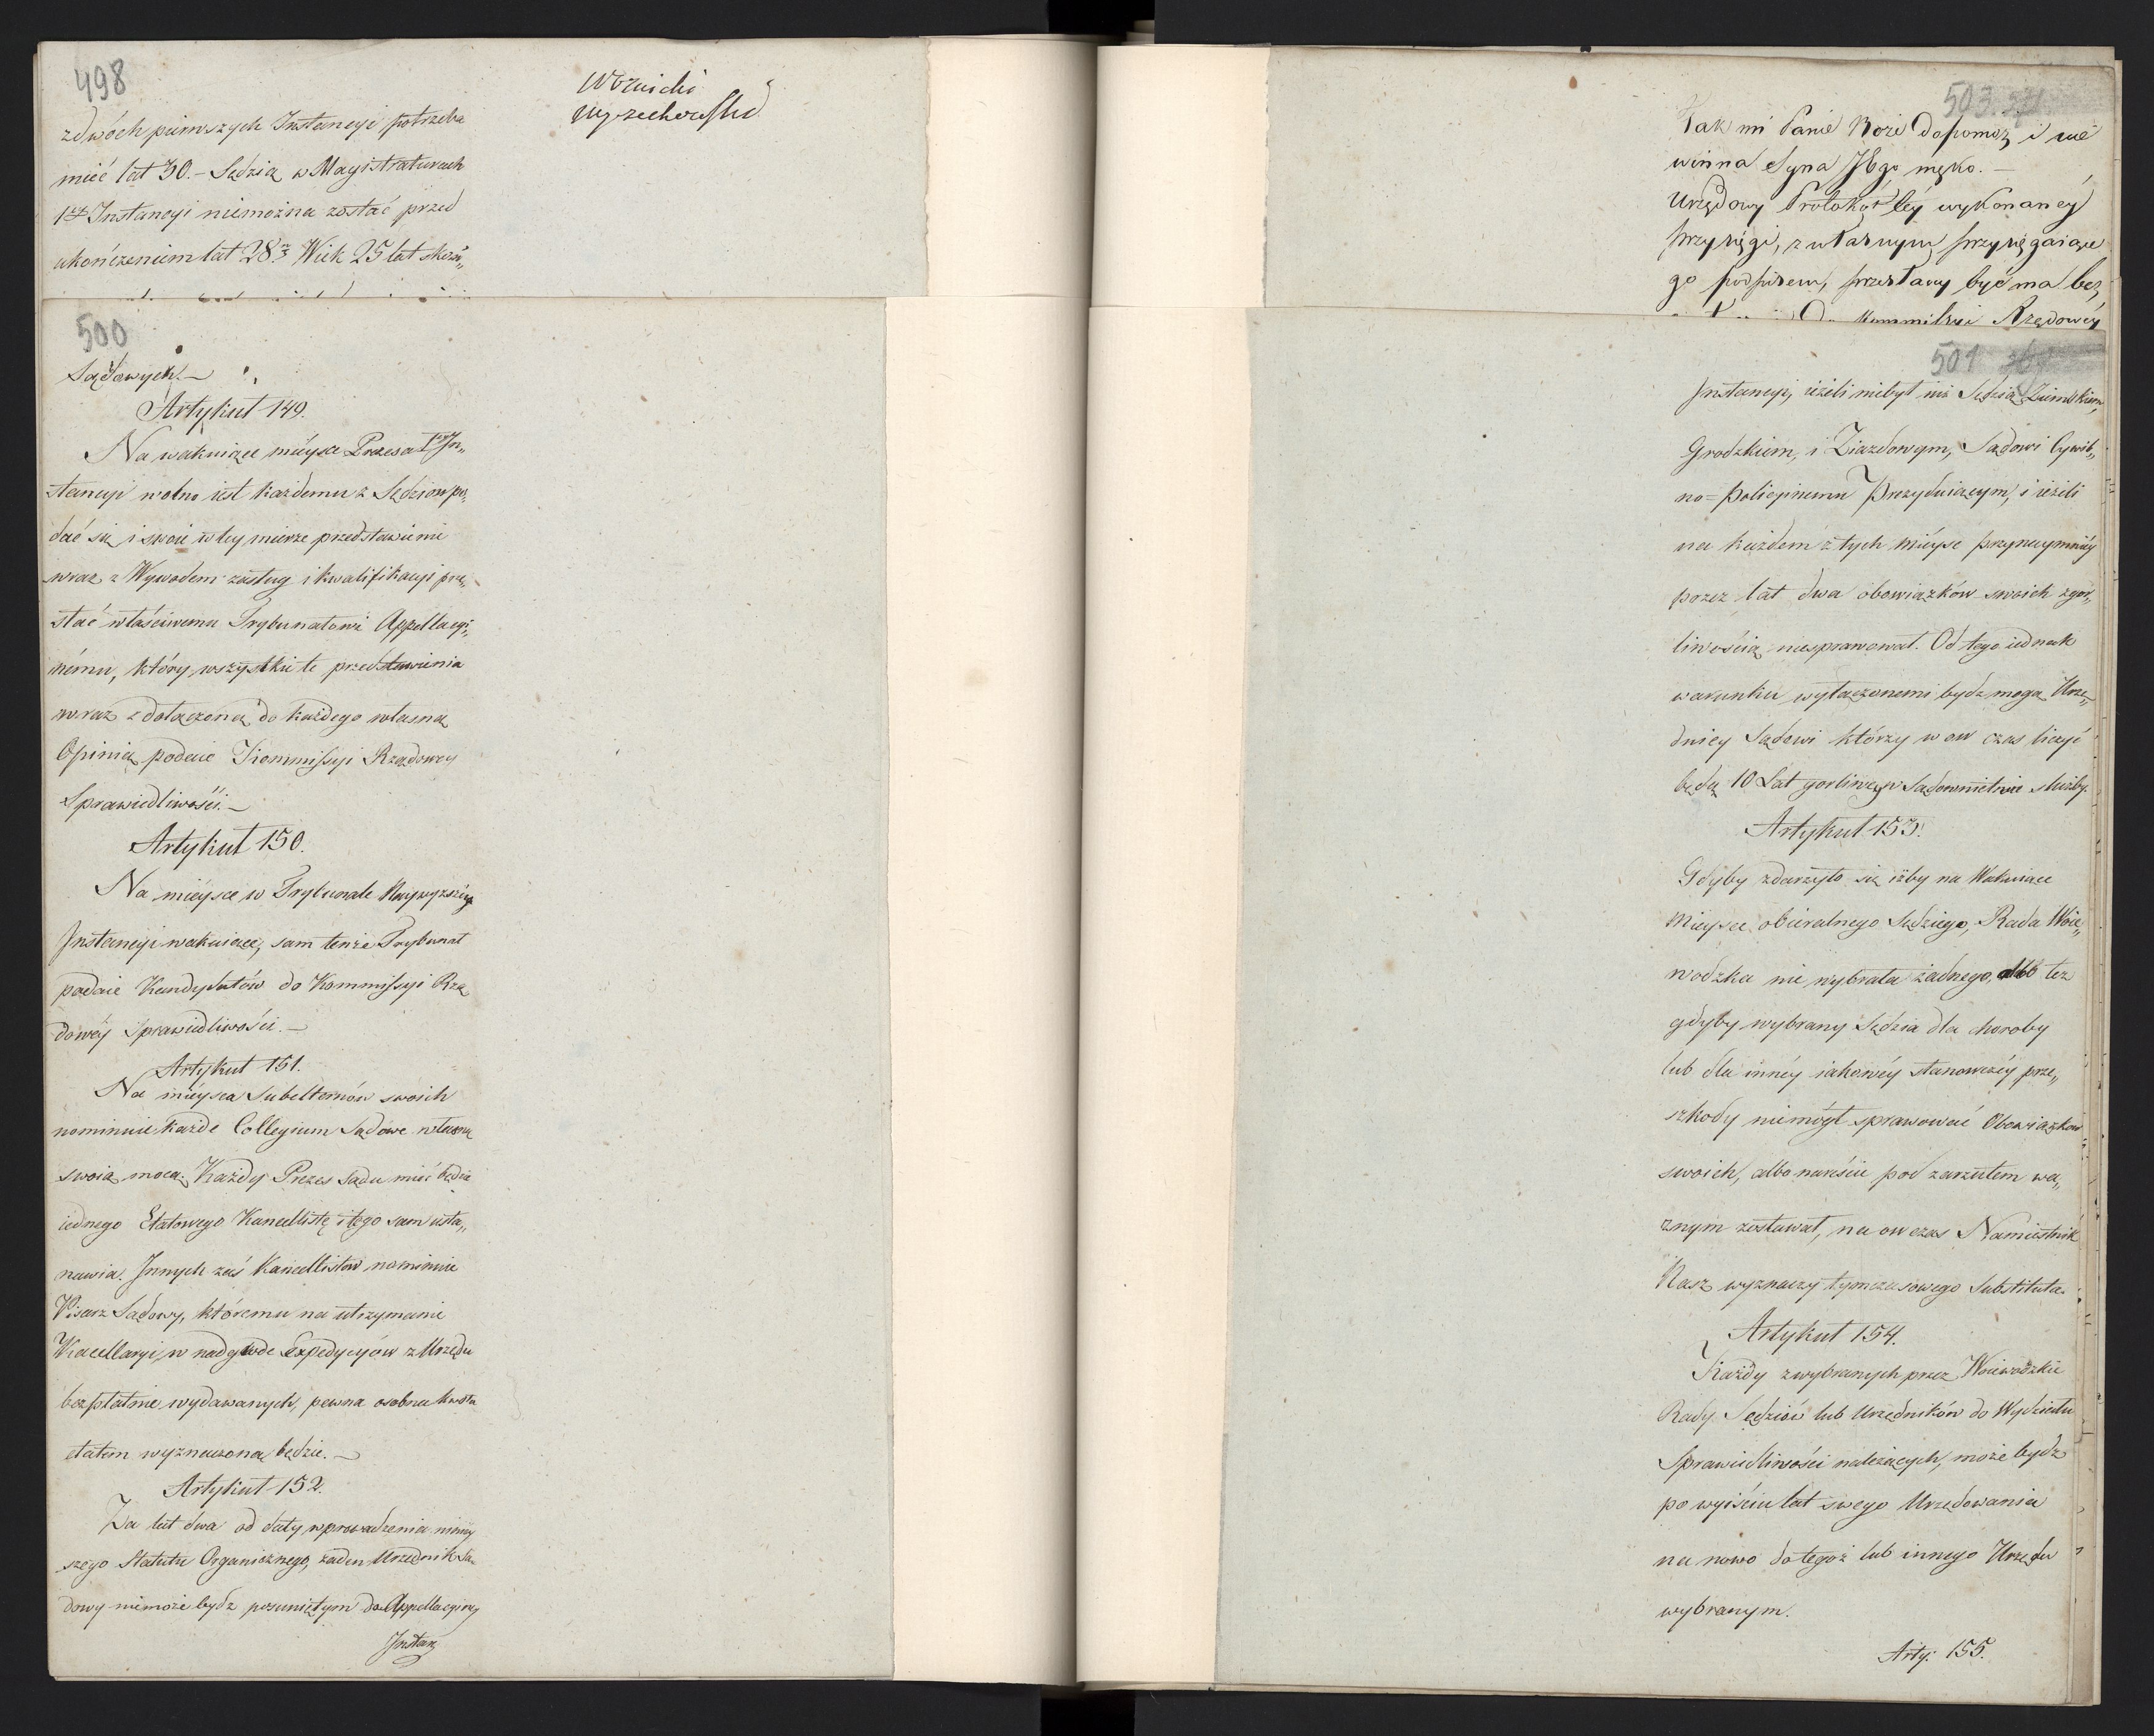 498
z dwóch pierwszych Instancyi potrzeba
mieć lat 30. – Sędzią w Magistraturach
1éy Instancyi niemożna zostać przed
ukończeniem lat 28. Wiek 25 lat skoń„
Woźnicki
Wyczechowski
500
Sądowych. –
Artykuł 149.
Na wakuiące mieysce Prezesa 1éy In„
stancyi wolno iest każdemu z Sędziów po„
dać się i swoie w tey mierze przedstawienie
wraz z Wywodem zasług i kwalifikacyi prze„
słać właściwemu Trybunałowi Appellacyi„
nému, który wszystkie te przedstawienia
wraz z dołączoną do każdego własną
Opinią podaie Kommissyi Rządowey
Sprawiedliwości. –
Artykuł 150.
Na mieysce w Trybunale Naywyższéy
Instancyi wakuiące, sam tenże Trybunał
podaie Kandydatów do Kommissyi Rzą
dowéy Sprawiedliwości. –
Artykuł 151.
Na mieysca Subalternów swoich
nominuie każde Collegium Sądowe własną
swoią mocą. Każdy Prezes Sądu mieć będzie
iednego Etatowego Kancellistę i tego sam usta„
nawia. Innych zaś Kancellistów nominuie
Pisarz Sądowy, któremu na utrzymanie
Kacellaryi, w nadgrode Expedycyów z Urzędu
bezpłatnie wydawanych, pewna osobna kwota
etatem wyznaczona będzie. –
Artykuł 152.
Za lat dwa od daty wprowadzenia niniey
szego Statutu Organicznego, żaden Urzednik Są„
dowy niemoże bydz posuniętym do Appellacyiney
Instan
503.
Tak mi Panie Boże dopomoz i nie
winna Syna Jego męko. –
Urzędowy Protokół téy wykonanéy
przysięgi, z własnym przysięgaiące
go podpisem, przesłany być ma bez
Kommissyi Rządowéy
501
Instancyi, ieżeli niebył iuż Sędzią Ziemskiem,
Grodzkiem, i Ziazdowym, Sądowi Cywil„
no=policyinemu Prezyduiącym, i ieżeli
na każdém z tych mieysc przynaymniéy
przez lat dwa obowiązków swoich z gor„
liwością niesprawował. Od tego iednak
warunku wyłączonemi bydz mogą Urzę„
dnicy Sądowi którzy w ow czas liczyć
będą 10 Lat gorliwey w Sądownictwie służby.
Artykuł 153.
Gdyby zdarzyło się iżby na Wakuiące
Mieysce obieralnego Sędziego, Rada Woie„
wodzka nie wybrała żadnego, albo tez
gdyby wybrany Sędzia dla choroby
lub dla innéy iakowéy stanowczéy prze„
szkody niemógł sprawować Obowiązków
swoich, albo nareście pod zarzutem wa„
żnym zostawał, na ow czas Namiestnik
Nasz wyznaczy tymczasowego Substituta.
Artykuł 154.
Każdy z wybranych przez Woiewódzkie
Rady Sędziów lub Urzędników do Wydziału
Sprawiedliwości należących, może bydz
po wyiściu lat swego Urzędowania
na nowo do tegoż lub innego Urzędu
wybranym.
Arty: 155.